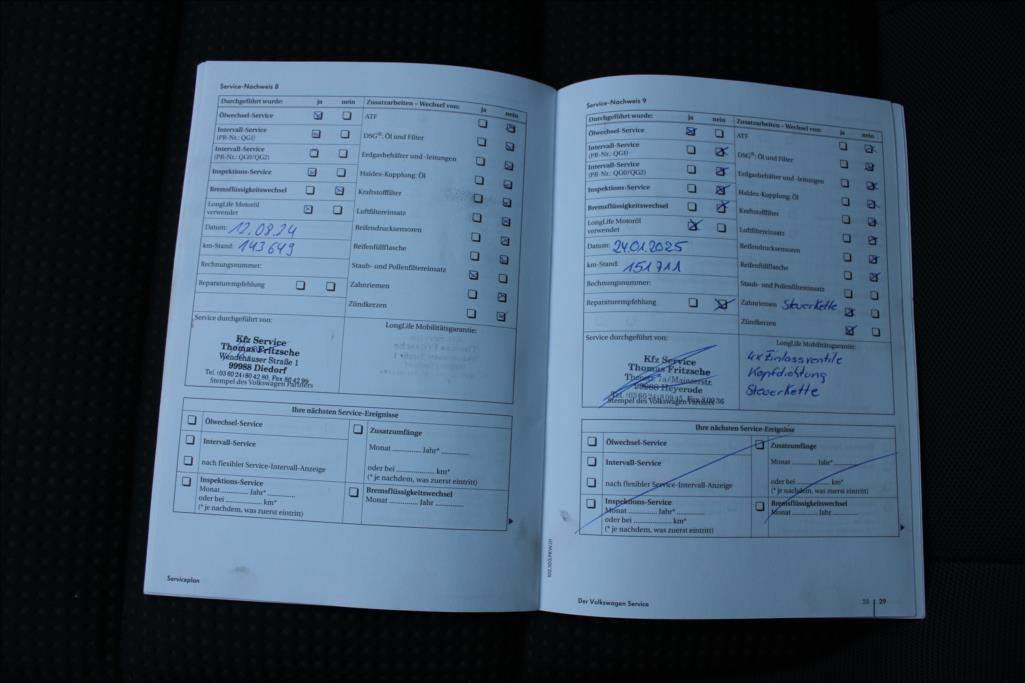 Service-Nachweis 8
Durchgeführt wurde: ja nein Zusatzarbeiten – Wechsel von: ja nein
Ölwechsel-Service
ATF
Intervall-Service
(PR-Nr.: QG1)
DSG®: Öl und Filter
Intervall-Service
(PR-Nr.: QG0/QG2)
Erdgasbehälter und -leitungen
Inspektions-Service
Haldex-Kupplung: Öl
Bremsflüssigkeitswechsel
Kraftstofffilter
LongLife Motoröl
verwendet
Luftfiltereinsatz
Datum: 12.08.24
Reifendrucksensoren
km-Stand: 143649
Reifenfüllflasche
Rechnungsnummer:
Staub- und Pollenfiltereinsatz
Reparaturempfehlung
Zahnriemen
Zündkerzen
Service durchgeführt von:
LongLife Mobilitätsgarantie:
Kfz Service
Thomas Fritzsche
Wendehäuser Straße 1
99988 Diedorf
Stempel des Volkswagen Partners
Ihre nächsten Service-Ereignisse
Ölwechsel-Service
Zusatzumfänge
Intervall-Service
Monat Jahr*
nach flexibler Service-Intervall-Anzeige
oder bei km*
(* je nachdem, was zuerst eintritt)
Inspektions-Service
Monat Jahr*
oder bei km*
(* je nachdem, was zuerst eintritt)
Bremsflüssigkeitswechsel
Monat Jahr
Serviceplan
Service-Nachweis 9
Durchgeführt wurde: ja nein Zusatzarbeiten – Wechsel von: ja nein
Ölwechsel-Service
ATF
Intervall-Service
(PR-Nr.: QG1)
DSG®: Öl und Filter
Intervall-Service
(PR-Nr.: QG0/QG2)
Erdgasbehälter und -leitungen
Inspektions-Service
Haldex-Kupplung: Öl
Bremsflüssigkeitswechsel
Kraftstofffilter
LongLife Motoröl
verwendet
Luftfiltereinsatz
Datum: 24.01.2025
Reifendrucksensoren
km-Stand: 151711
Reifenfüllflasche
Rechnungsnummer:
Staub- und Pollenfiltereinsatz
Reparaturempfehlung
Zahnriemen Steuerkette
Zündkerzen
Service durchgeführt von:
LongLife Mobilitätsgarantie:
Kfz Service
Thomas Fritzsche
99988 Heyerode
Stempel des Volkswagen Partners
4x Einlassventile
Kopfdichtung
Steuerkette
Ihre nächsten Service-Ereignisse
Ölwechsel-Service
Zusatzumfänge
Intervall-Service
Monat Jahr*
nach flexibler Service-Intervall-Anzeige
oder bei km*
(* je nachdem, was zuerst eintritt)
Inspektions-Service
Monat Jahr*
oder bei km*
(* je nachdem, was zuerst eintritt)
Bremsflüssigkeitswechsel
Monat Jahr
Der Volkswagen Service
28 29